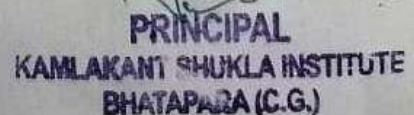 PRINCIPAL
KAMLAKANT SHUKLA INSTITUTE
BHATAPARA (C.G.)